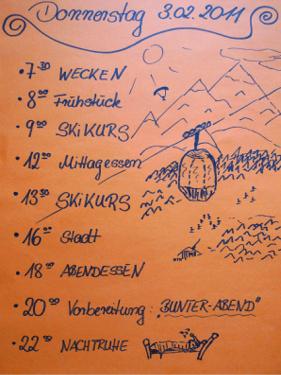 Donnerstag 3.02.2011
• 7³⁰ WECKEN
• 8⁰⁰ Frühstück
• 9⁰⁰ SKIKURS
• 12⁰⁰ Mittagessen
• 13³⁰ SKIKURS
• 16⁰⁰ Stadt
• 18⁰⁰ ABENDESSEN
• 20⁰⁰ Vorbereitung: „BUNTER-ABEND"
• 22⁰⁰ NACHTRUHE